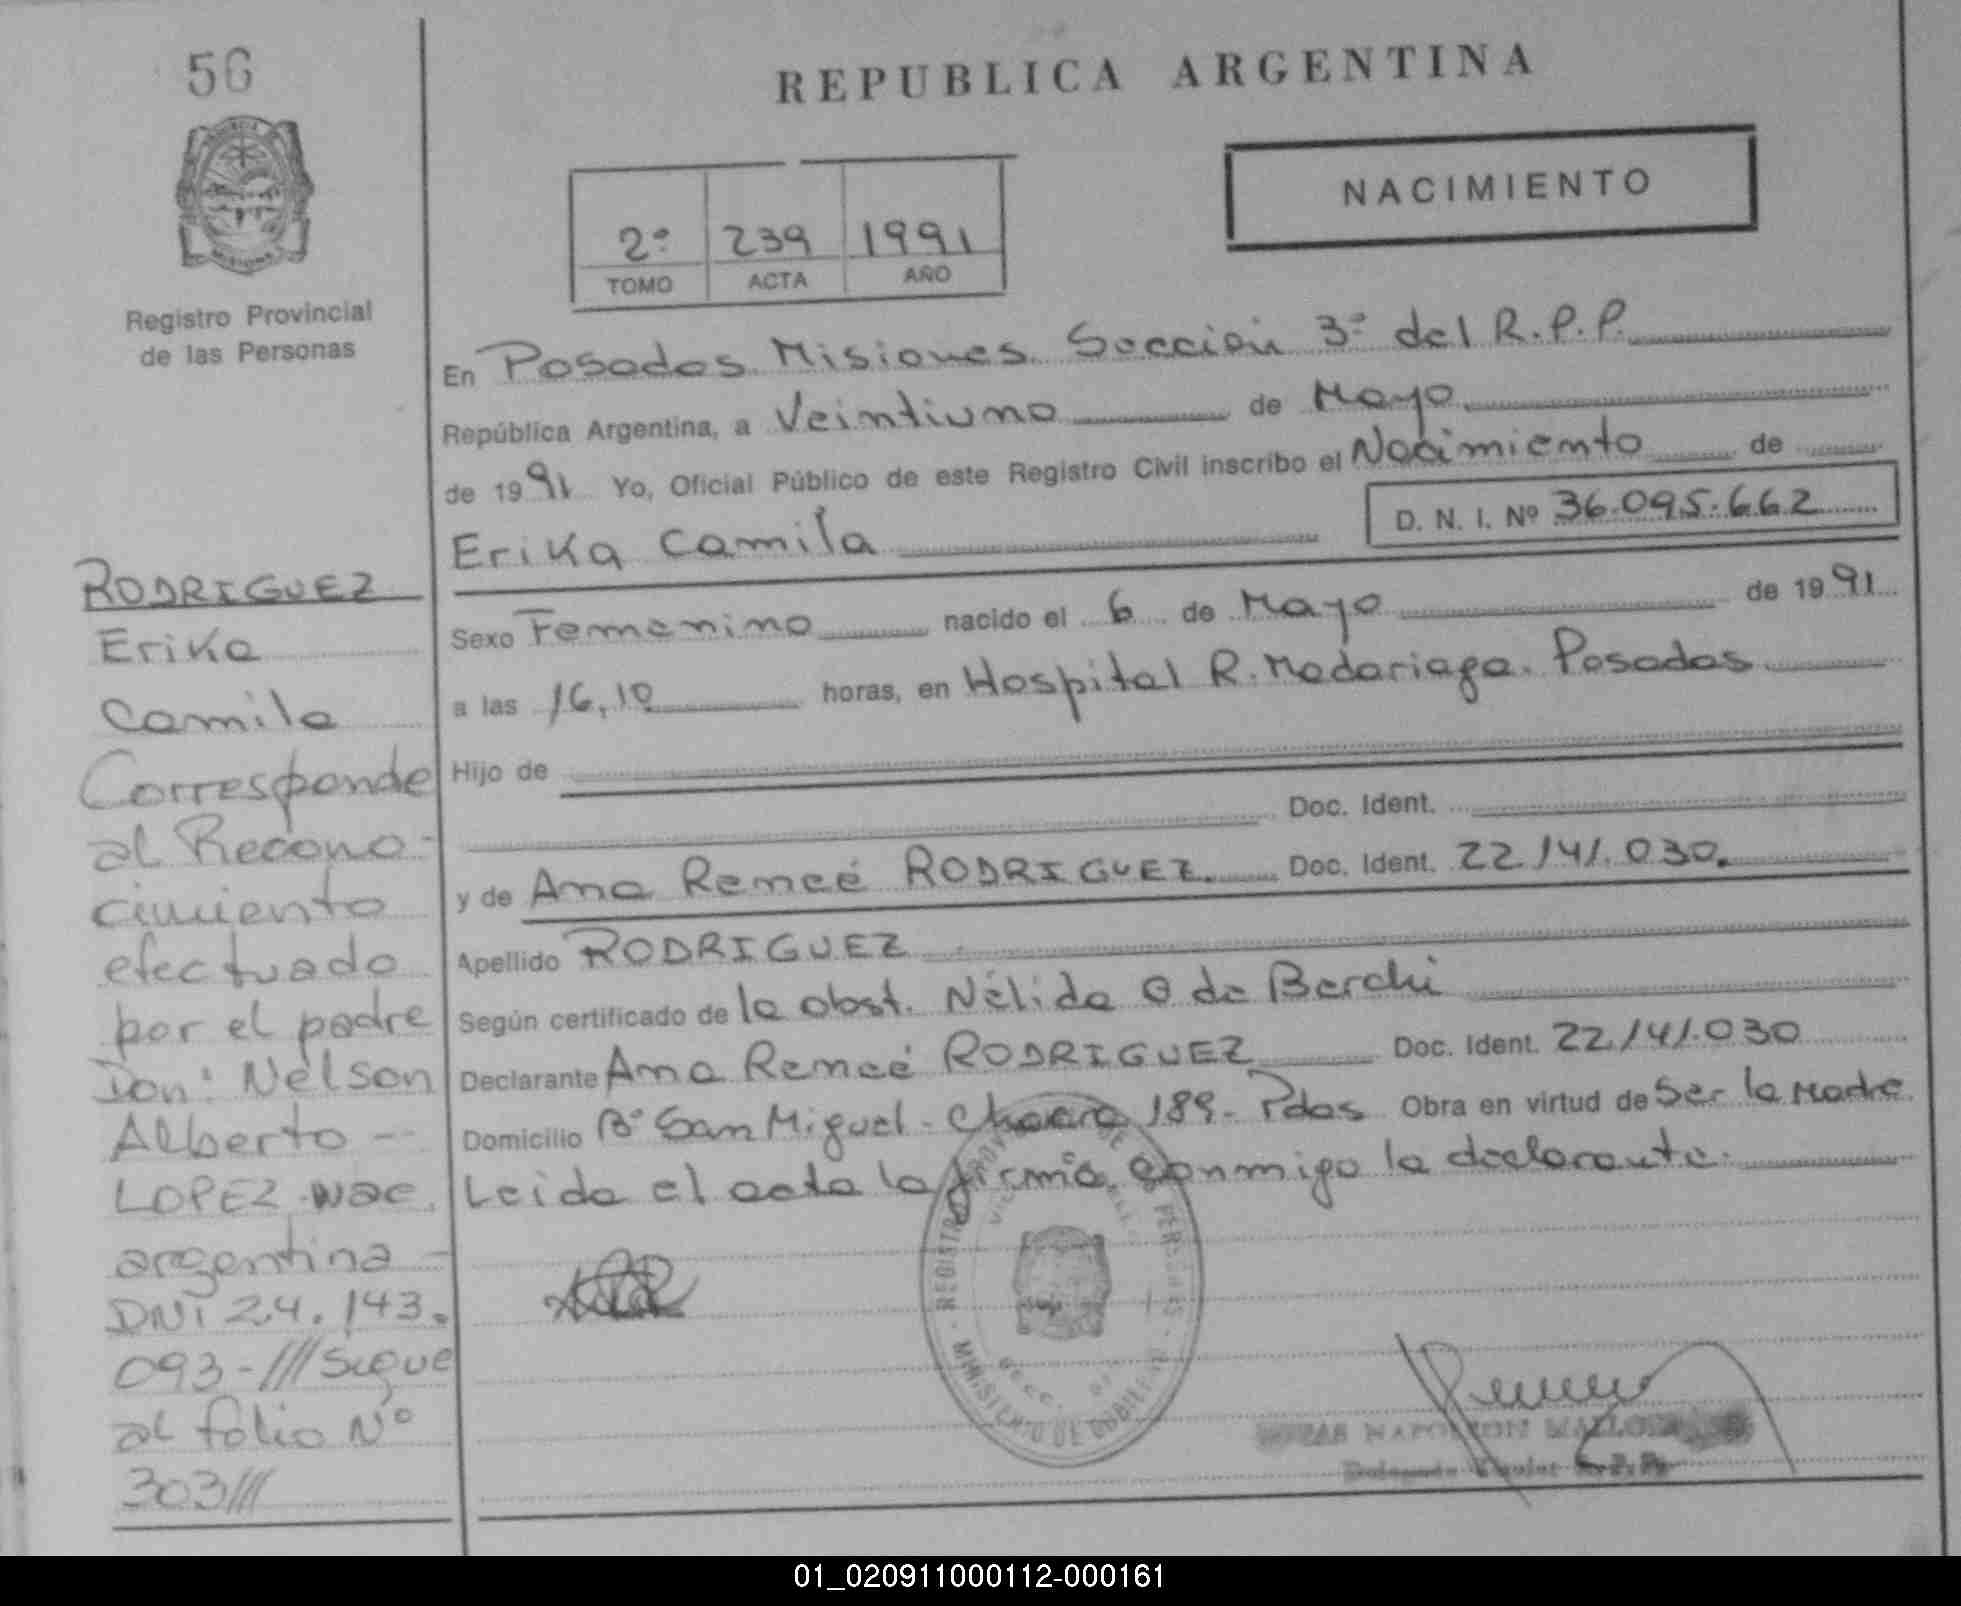 56
REPUBLICA ARGENTINA
NACIMIENTO
2º 239 1991
TOMO ACTA AÑO
Registro Provincial
de las Personas
En Posadas Misiones. Sección 3º del R.P.P.
República Argentina, a Veintiuno de Mayo
de 1991 Yo, Oficial Público de este Registro Civil inscribo el Nacimiento de
Erika Camila D. N. I. Nº 36.095.662
Sexo Femenino nacido el 6 de Mayo de 1991
a las 16,10 horas, en Hospital R. Madariaga. Posadas
Hijo de
Doc. Ident.
y de Ana Reneé RODRIGUEZ. Doc. Ident. 22.141.030.
Apellido RODRIGUEZ
Según certificado de la obst. Nélida O de Berchi
Declarante Ana Reneé RODRIGUEZ Doc. Ident. 22.141.030
Domicilio Bº San Miguel - Chacra 189 - Pdas Obra en virtud de Ser la Madre.
Leida el acta la firma conmigo la declarante.
RODRIGUEZ
Erika
Camila
Corresponde
al Recono-
cimiento
efectuado
por el padre
Don: Nelson
Alberto --
LOPEZ nac.
argentina -
DNI 24.143.
093 - /// Sigue
al folio Nº
303///
REGISTRO
MINISTERIO DE GOBIERNO
NAPOLEON
R.P.P.
01_020911000112-000161